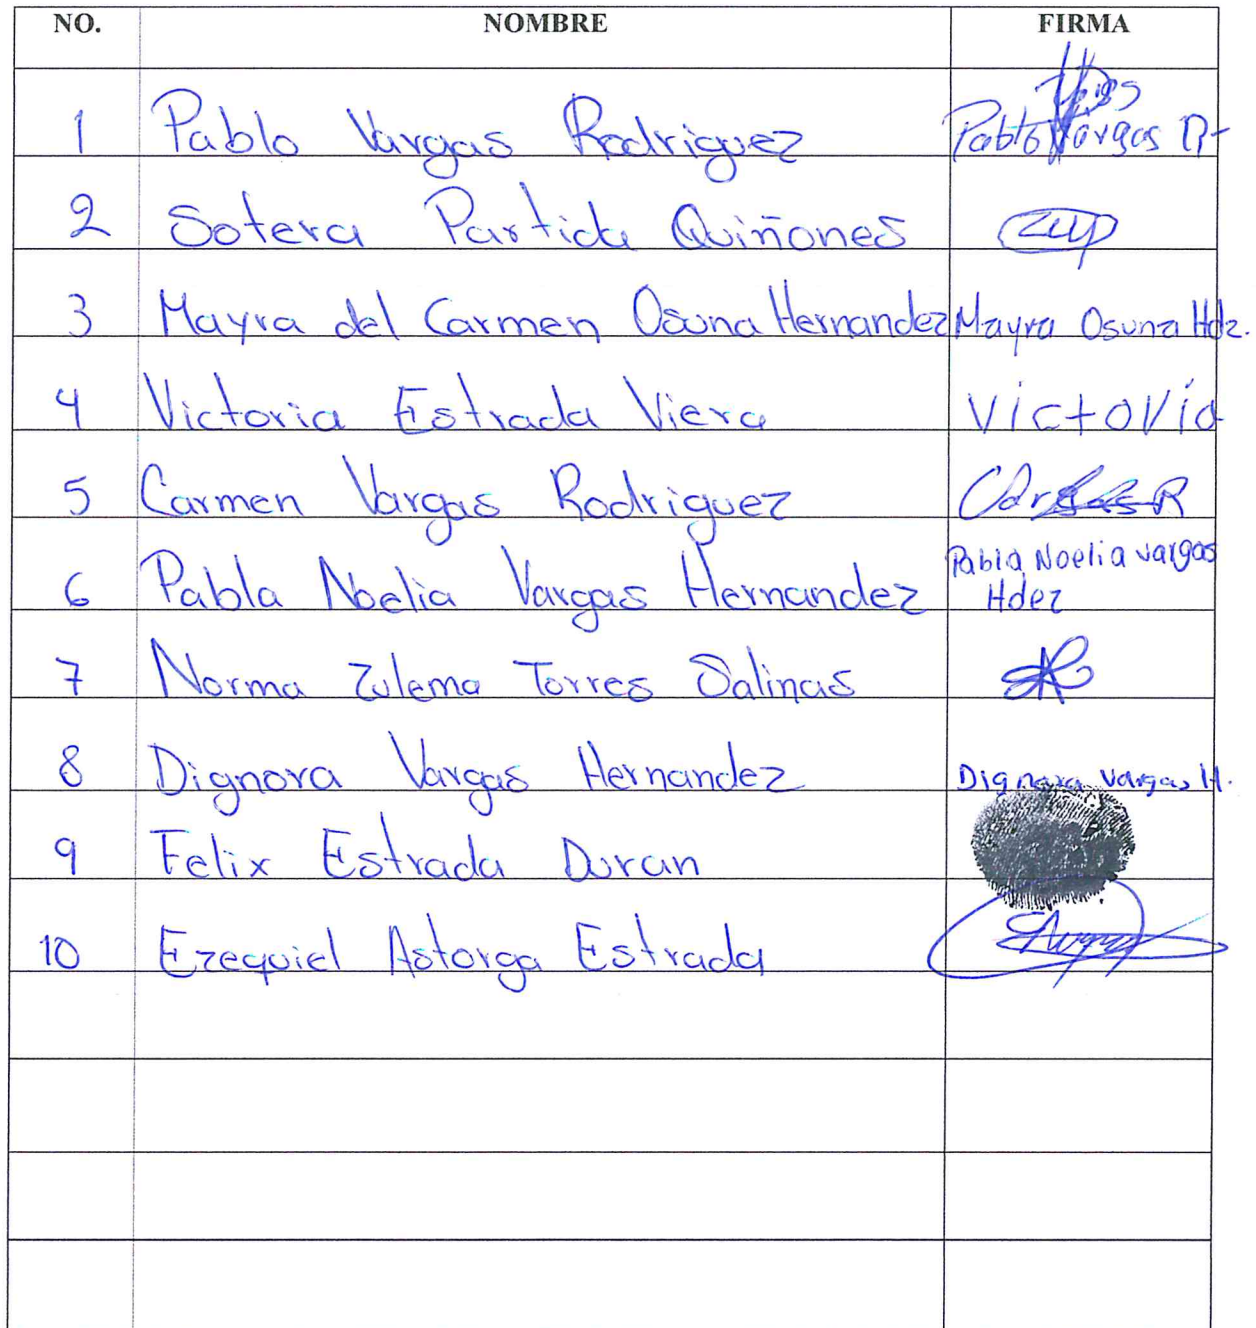 NO. NOMBRE FIRMA
1 Pablo Vargas Rodriguez Pablo Vargas R
2 Sotera Partida Quiñones
3 Mayra del Carmen Osuna Hernandez Mayra Osuna Hdz.
4 Victoria Estrada Viera Victoria
5 Carmen Vargas Rodriguez
6 Pabla Noelia Vargas Hernandez Pabla Noelia vargas
Hdez
7 Norma Zulema Torres Salinas
8 Dignora Vargas Hernandez Dignora Vargas H.
9 Felix Estrada Duran
10 Ezequiel Astorga Estrada